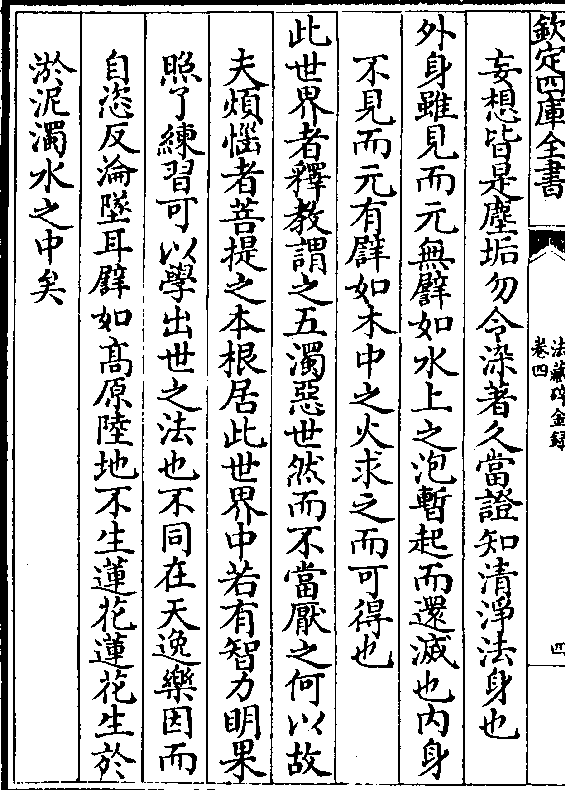 欽定四庫全書
法藏碎金録
卷四
四
妄想皆是塵垢勿令染著久當證知清淨法身也
外身雖見而元無譬如水上之泡暫起而還滅也内身
不見而元有譬如木中之火求之而可得也
此世界者釋教謂之五濁惡世然而不當厭之何以故
夫煩惱者菩提之本根居此世界中若有智力明果
照了練習可以學出世之法也不同在天逸樂因而
自恣反淪墜耳譬如高原陸地不生蓮花蓮花生於
淤泥濁水之中矣